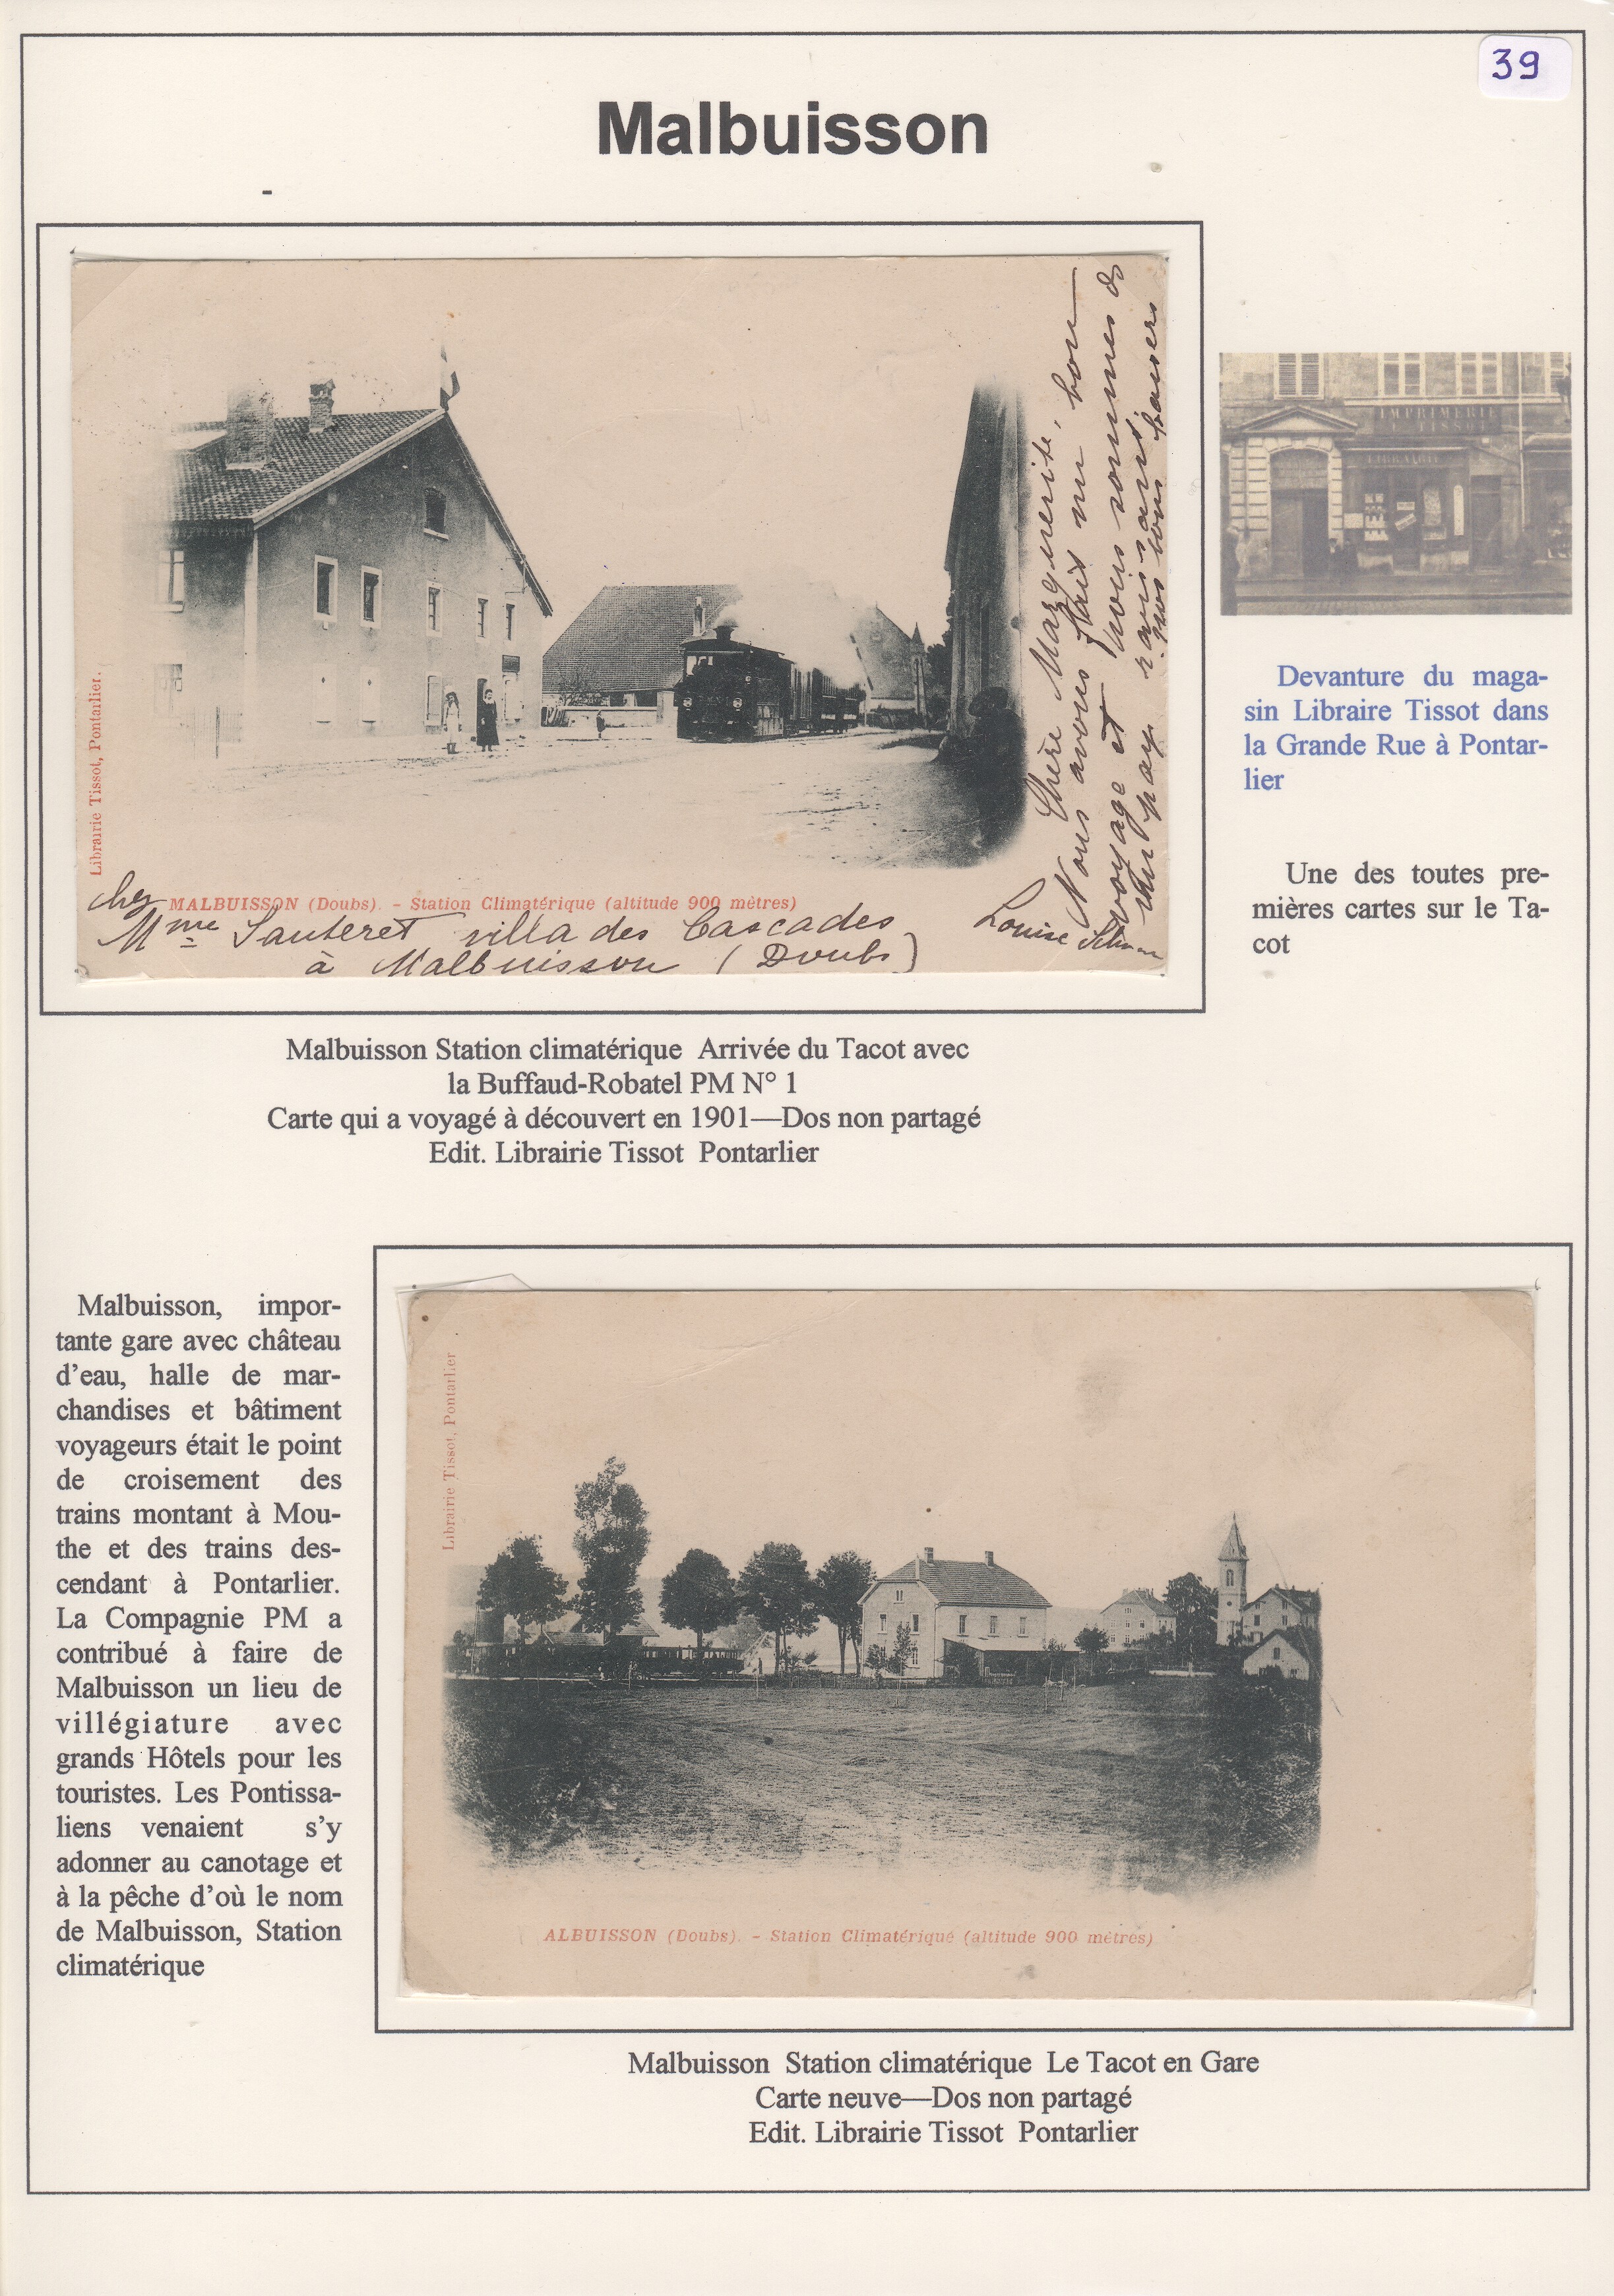 39
Malbuisson
-
Librairie Tissot, Pontarlier.
Chère Marguerite,
Nous avons fait un bon
voyage et nous sommes ds
un pay ravissant
nos bons baisers
Louise
MALBUISSON (Doubs). - Station Climatérique (altitude 900 mètres)
chez
Mme Sauteret villa des Cascades
à Malbuisson (Doubs)
IMPRIMERIE
L. TISSOT
LIBRAIRIE
Devanture du maga-
sin Libraire Tissot dans
la Grande Rue à Pontar-
lier
Une des toutes pre-
mières cartes sur le Ta-
cot
Malbuisson Station climatérique Arrivée du Tacot avec
la Buffaud-Robatel PM N° 1
Carte qui a voyagé à découvert en 1901—Dos non partagé
Edit. Librairie Tissot Pontarlier
Malbuisson, impor-
tante gare avec château
d'eau, halle de mar-
chandises et bâtiment
voyageurs était le point
de croisement des
trains montant à Mou-
the et des trains des-
cendant à Pontarlier.
La Compagnie PM a
contribué à faire de
Malbuisson un lieu de
villégiature avec
grands Hôtels pour les
touristes. Les Pontissa-
liens venaient s'y
adonner au canotage et
à la pêche d'où le nom
de Malbuisson, Station
climatérique
Librairie Tissot, Pontarlier
ALBUISSON (Doubs). - Station Climatérique (altitude 900 mètres)
Malbuisson Station climatérique Le Tacot en Gare
Carte neuve—Dos non partagé
Edit. Librairie Tissot Pontarlier